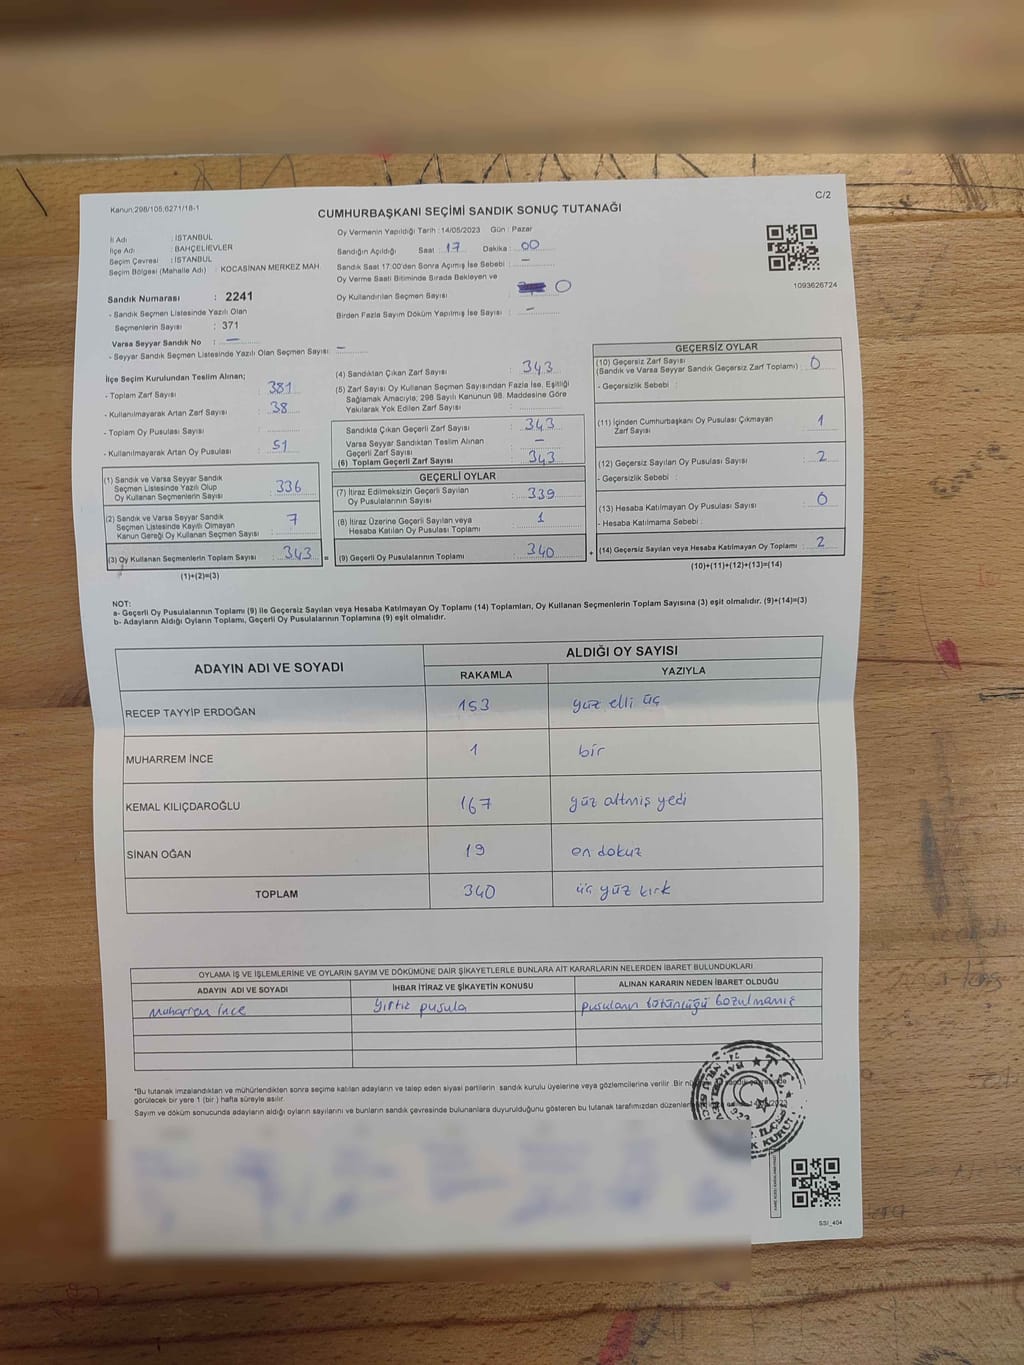 Kanun,298/105,6271/18-1
C/2
CUMHURBAŞKANI SEÇİMİ SANDIK SONUÇ TUTANAĞI
İl Adı : İSTANBUL
İlçe Adı : BAHÇELİEVLER
Seçim Çevresi : İSTANBUL
Seçim Bölgesi (Mahalle Adı) : KOCASİNAN MERKEZ MAH
Oy Vermenin Yapıldığı Tarih : 14/05/2023 Gün : Pazar
Sandığın Açıldığı Saat : 17 Dakika : 00
Sandık Saat 17:00'den Sonra Açımış İse Sebebi : -
Oy Verme Saati Bitiminde Sırada Bekleyen ve
Oy Kullandırılan Seçmen Sayısı : 0
Birden Fazla Sayım Döküm Yapılmış İse Sayısı : -
1093626724
Sandık Numarası : 2241
- Sandık Seçmen Listesinde Yazılı Olan
Seçmenlerin Sayısı : 371
Varsa Seyyar Sandık No : -
- Seyyar Sandık Seçmen Listesinde Yazılı Olan Seçmen Sayısı : -
İlçe Seçim Kurulundan Teslim Alınan;
- Toplam Zarf Sayısı : 381
- Kullanılmayarak Artan Zarf Sayısı : 38
- Toplam Oy Pusulası Sayısı :
- Kullanılmayarak Artan Oy Pusulası : 51
(1) Sandık ve Varsa Seyyar Sandık
Seçmen Listesinde Yazılı Olup
Oy Kullanan Seçmenlerin Sayısı : 336
(2) Sandık ve Varsa Seyyar Sandık
Seçmen Listesinde Kayıtlı Olmayan
Kanun Gereği Oy Kullanan Seçmen Sayısı : 7
(3) Oy Kullanan Seçmenlerin Toplam Sayısı : 343 =
(1)+(2)=(3)
(4) Sandıktan Çıkan Zarf Sayısı : 343
(5) Zarf Sayısı Oy Kullanan Seçmen Sayısından Fazla İse, Eşitliği
Sağlamak Amacıyla; 298 Sayılı Kanunun 98. Maddesine Göre
Yakılarak Yok Edilen Zarf Sayısı :
Sandıkta Çıkan Geçerli Zarf Sayısı : 343
Varsa Seyyar Sandıktan Teslim Alınan
Geçerli Zarf Sayısı : -
(6) Toplam Geçerli Zarf Sayısı : 343
GEÇERLİ OYLAR
(7) İtiraz Edilmeksizin Geçerli Sayılan
Oy Pusulalarının Sayısı : 339
(8) İtiraz Üzerine Geçerli Sayılan veya
Hesaba Katılan Oy Pusulası Toplamı : 1
(9) Geçerli Oy Pusulalarının Toplamı : 340 +
GEÇERSİZ OYLAR
(10) Geçersiz Zarf Sayısı
(Sandık ve Varsa Seyyar Sandık Geçersiz Zarf Toplamı) : 0
- Geçersizlik Sebebi :
(11) İçinden Cumhurbaşkanı Oy Pusulası Çıkmayan
Zarf Sayısı : 1
(12) Geçersiz Sayılan Oy Pusulası Sayısı : 2
- Geçersizlik Sebebi :
(13) Hesaba Katılmayan Oy Pusulası Sayısı : 0
- Hesaba Katılmama Sebebi :
(14) Geçersiz Sayılan veya Hesaba Katılmayan Oy Toplamı : 2
(10)+(11)+(12)+(13)=(14)
NOT:
a- Geçerli Oy Pusulalarının Toplamı (9) ile Geçersiz Sayılan veya Hesaba Katılmayan Oy Toplamı (14) Toplamları, Oy Kullanan Seçmenlerin Toplam Sayısına (3) eşit olmalıdır. (9)+(14)=(3)
b- Adayların Aldığı Oyların Toplamı, Geçerli Oy Pusulalarının Toplamına (9) eşit olmalıdır.
ADAYIN ADI VE SOYADI ALDIĞI OY SAYISI
RAKAMLA YAZIYLA
RECEP TAYYİP ERDOĞAN 153 yüz elli üç
MUHARREM İNCE 1 bir
KEMAL KILIÇDAROĞLU 167 yüz altmış yedi
SİNAN OĞAN 19 on dokuz
TOPLAM 340 üç yüz kırk
OYLAMA İŞ VE İŞLEMLERİNE VE OYLARIN SAYIM VE DÖKÜMÜNE DAİR ŞİKAYETLERLE BUNLARA AİT KARARLARIN NELERDEN İBARET BULUNDUKLARI
ADAYIN ADI VE SOYADI İHBAR İTİRAZ VE ŞİKAYETİN KONUSU ALINAN KARARIN NEDEN İBARET OLDUĞU
Muharrem İnce Yırtık pusula pusulanın bütünlüğü bozulmamış
*Bu tutanak imzalandıktan ve mühürlendikten sonra seçime katılan adayların ve talep eden siyasi partilerin sandık kurulu üyelerine veya gözlemcilerine verilir. Bir
görülecek bir yere 1 (bir ) hafta süreyle asılır.
Sayım ve döküm sonucunda adayların aldığı oyların sayılarını ve bunların sandık çevresinde bulunanlara duyurulduğunu gösteren bu tutanak tarafımızdan
SSİ_404